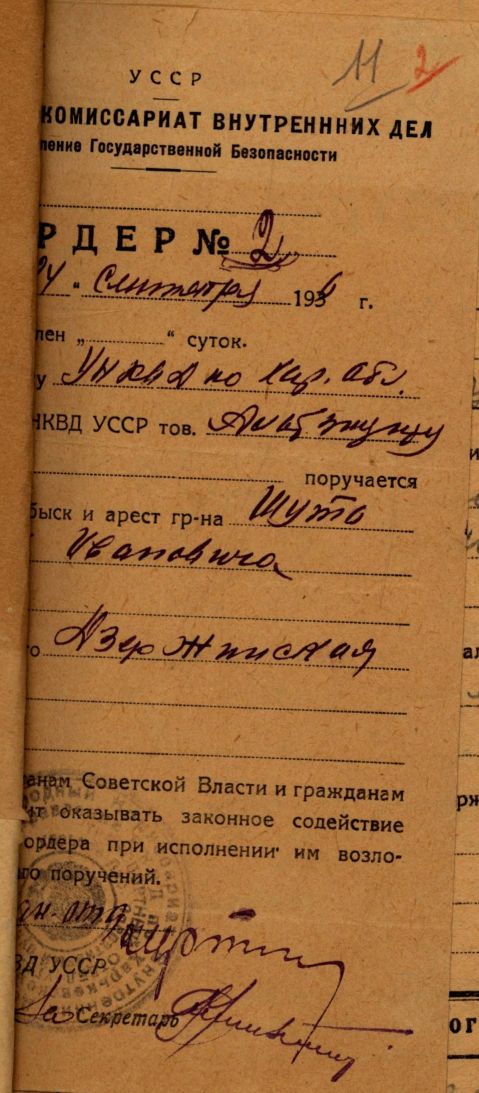 11 2
УССР
КОМИССАРИАТ ВНУТРЕНННИХ ДЕЛ
ление Государственной Безопасности
РДЕР № 2
24 " Сентября 1936 г.
лен „ “ суток.
у УНКВД по Хар. обл.
НКВД УССР тов.
поручается
быск и арест гр-на Шуто
Ивановича
о Дзержинская
анам Советской Власти и гражданам
ит оказывать законное содействие
ордера при исполнении им возло-
го поручений.
ВД УССР
Секретарь